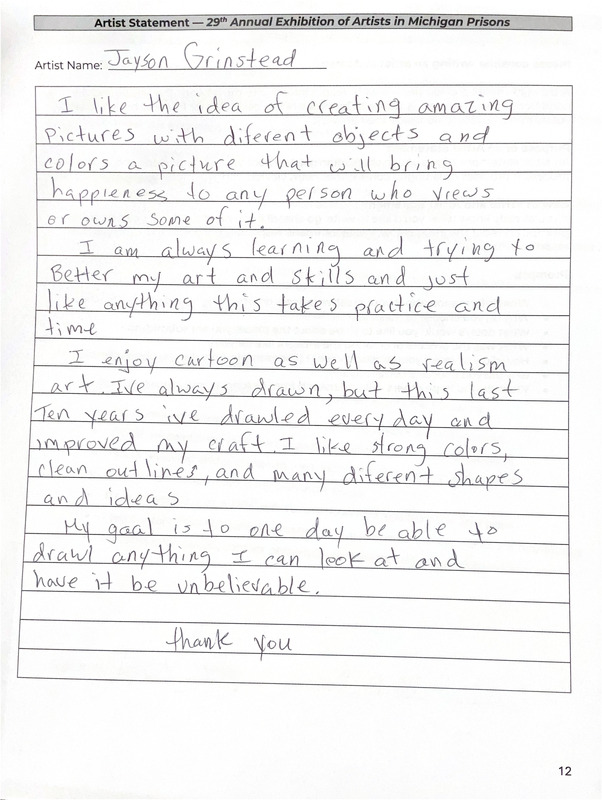 Artist Statement — 29th Annual Exhibition of Artists in Michigan Prisons
Artist Name: Jayson Grinstead
I like the idea of creating amazing
Pictures with diferent objects and
colors a picture that will bring
happieness to any person who views
or owns some of it.
I am always learning and trying to
Better my art and skills and just
like anything this takes practice and
time
I enjoy cartoon as well as realism
art. Ive always drawn, but this last
Ten years ive drawled every day and
improved my craft. I like strong colors,
clean outlines, and many diferent shapes
and ideas
My goal is to one day be able to
drawl anything I can look at and
have it be unbelievable.
thank you
12